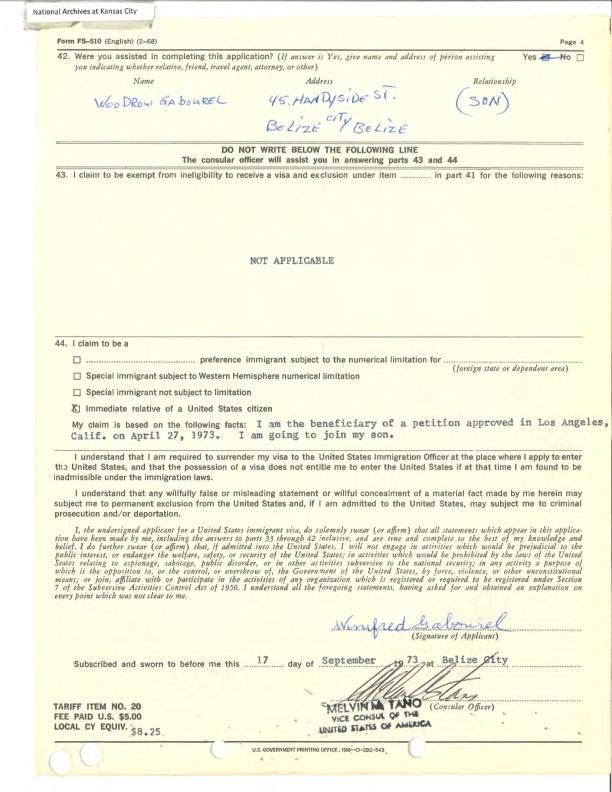 National Archives at Kansas City
Form FS-510 (English) (2-68)
Page 4
42. Were you assisted in completing this application? (If answer is Yes, give name and address of person assisting Yes No
you indicating whether relative, friend, travel agent, attorney, or other)
Name Address Relationship
WOODROW GABOUREL 45. HANDYSIDE ST. (SON)
BELIZE CITY BELIZE
DO NOT WRITE BELOW THE FOLLOWING LINE
The consular officer will assist you in answering parts 43 and 44
43. I claim to be exempt from ineligibility to receive a visa and exclusion under item ............ in part 41 for the following reasons:
NOT APPLICABLE
44. I claim to be a
☐ ........................................ preference immigrant subject to the numerical limitation for ........................................
(foreign state or dependent area)
☐ Special immigrant subject to Western Hemisphere numerical limitation
☐ Special immigrant not subject to limitation
☒ Immediate relative of a United States citizen
My claim is based on the following facts: I am the beneficiary of a petition approved in Los Angeles,
Calif. on April 27, 1973. I am going to join my son.
I understand that I am required to surrender my visa to the United States Immigration Officer at the place where I apply to enter
the United States, and that the possession of a visa does not entitle me to enter the United States if at that time I am found to be
inadmissible under the immigration laws.
I understand that any willfully false or misleading statement or willful concealment of a material fact made by me herein may
subject me to permanent exclusion from the United States and, if I am admitted to the United States, may subject me to criminal
prosecution and/or deportation.
I, the undersigned applicant for a United States immigrant visa, do solemnly swear (or affirm) that all statements which appear in this applica-
tion have been made by me, including the answers to parts 33 through 42 inclusive, and are true and complete to the best of my knowledge and
belief. I do further swear (or affirm) that, if admitted into the United States, I will not engage in activities which would be prejudicial to the
public interest, or endanger the welfare, safety, or security of the United States; in activities which would be prohibited by the laws of the United
States relating to espionage, sabotage, public disorder, or in other activities subversive to the national security; in any activity a purpose of
which is the opposition to, or the control, or overthrow of, the Government of the United States, by force, violence, or other unconstitutional
means; or join, affiliate with or participate in the activities of any organization which is registered or required to be registered under Section
7 of the Subversive Activities Control Act of 1950. I understand all the foregoing statements, having asked for and obtained an explanation on
every point which was not clear to me.
Winifred Gabourel
(Signature of Applicant)
Subscribed and sworn to before me this 17 day of September 1973 at Belize City
MELVIN M TANO (Consular Officer)
VICE CONSUL OF THE
UNITED STATES OF AMERICA
TARIFF ITEM NO. 20
FEE PAID U.S. $5.00
LOCAL CY EQUIV. $8.25.
U.S. GOVERNMENT PRINTING OFFICE: 1968-O-292-543